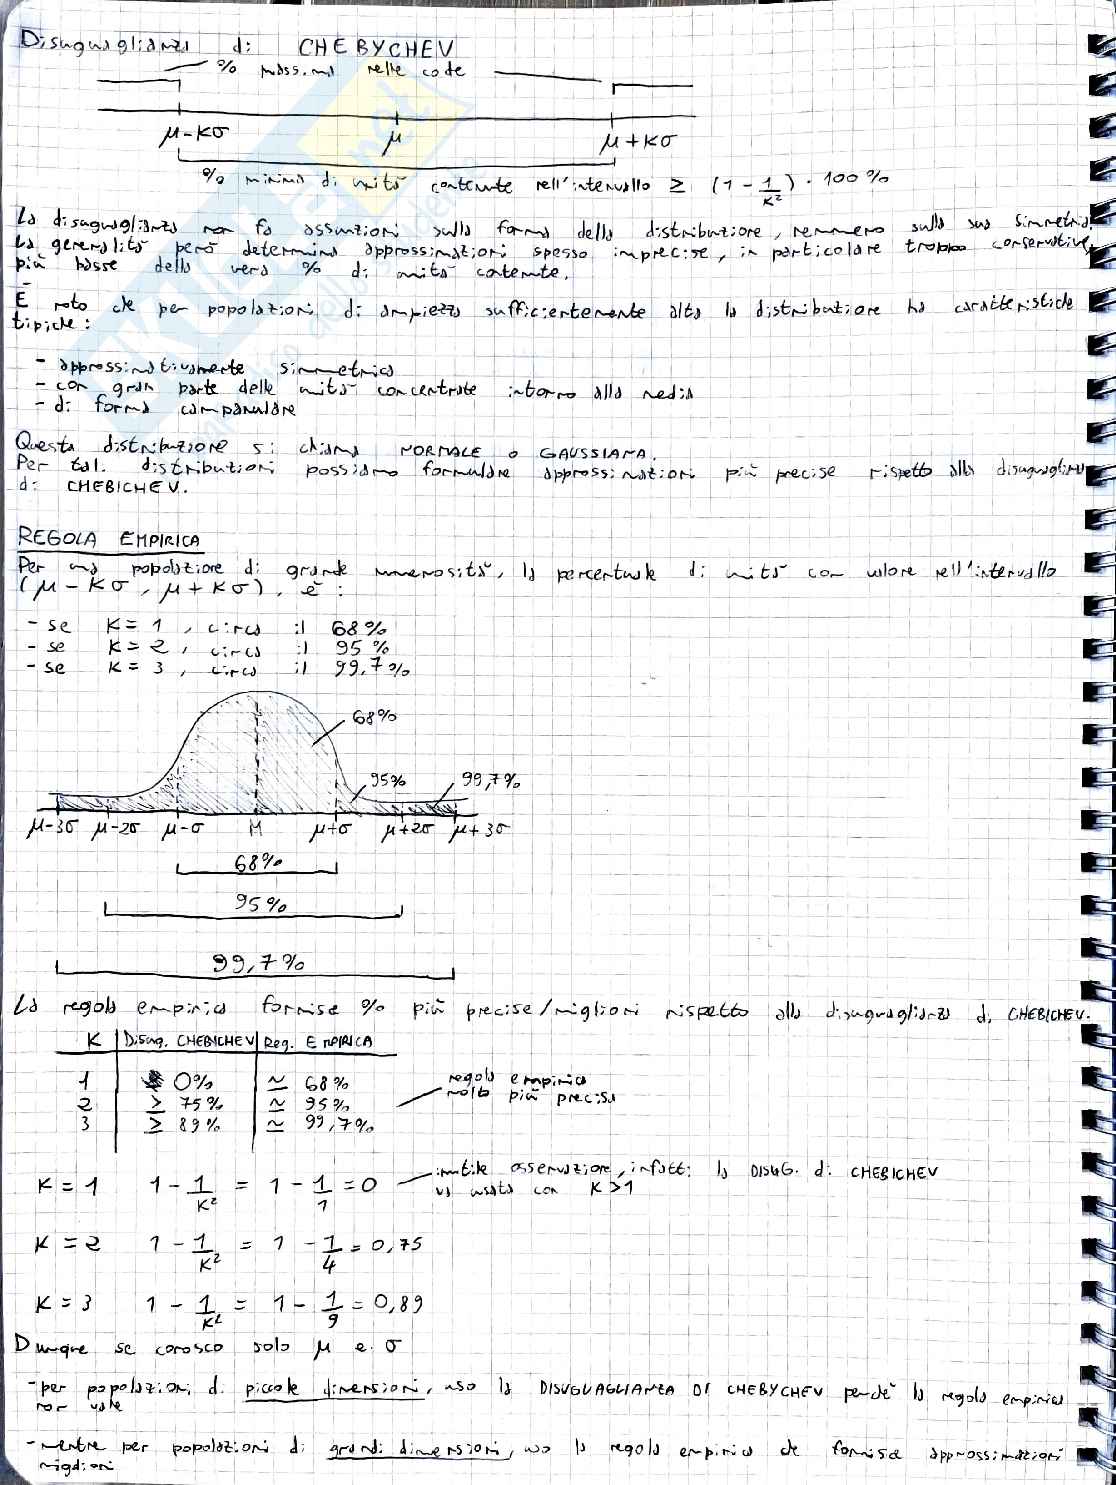 Disuguaglianza di CHEBYCHEV
% massima nelle code
μ-Kσ μ μ+Kσ
% minima di unità contenute nell'intervallo ≥ (1 - 1/K²) · 100%
La disuguaglianza non fa assunzioni sulla forma della distribuzione, nemmeno sulla sua simmetria.
La generalità però determina approssimazioni spesso imprecise, in particolare troppo conservative,
più basse della vera % di unità contenute.
È noto che per popolazioni di ampiezza sufficientemente alta la distribuzione ha caratteristiche
tipiche:
- approssimativamente simmetrica
- con gran parte delle unità concentrate intorno alla media
- di forma campanulare
Questa distribuzione si chiama NORMALE o GAUSSIANA.
Per tali distribuzioni possiamo formulare approssimazioni più precise rispetto alla disuguaglianza
di CHEBICHEV.
REGOLA EMPIRICA
Per una popolazione di grande numerosità, la percentuale di unità con valore nell'intervallo
(μ-Kσ, μ+Kσ), è:
- se K=1, circa il 68%
- se K=2, circa il 95%
- se K=3, circa il 99,7%
68%
95% 99,7%
μ-3σ μ-2σ μ-σ M μ+σ μ+2σ μ+3σ
68%
95%
99,7%
La regola empirica fornisce % più precise/migliori rispetto alla disuguaglianza di CHEBICHEV.
K Disug. CHEBYCHEV Reg. EMPIRICA
1 0% ≃ 68% regola empirica
2 ≥ 75% ≃ 95% molto più precisa
3 ≥ 89% ≃ 99,7%
K=1 1 - 1/K² = 1 - 1/1 = 0 inutile osservazione, infatti la DISUG. di CHEBICHEV
va usata con K>1
K=2 1 - 1/K² = 1 - 1/4 = 0,75
K=3 1 - 1/K² = 1 - 1/9 = 0,89
Dunque se conosco solo μ e σ
- per popolazioni di piccole dimensioni, uso la DISUGUAGLIANZA DI CHEBYCHEV perché la regola empirica
non vale
- mentre per popolazioni di grandi dimensioni, uso la regola empirica che fornisce approssimazioni
migliori